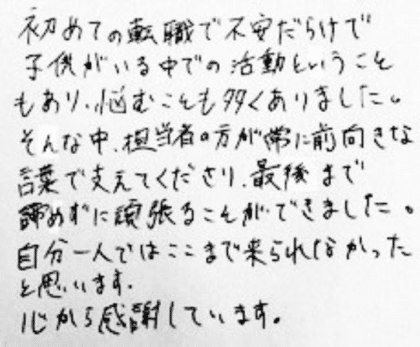 初めての転職で不安だらけで
子供がいる中での活動ということ
もあり、悩むことも多くありました。
そんな中、担当者の方が常に前向きな
言葉で支えてくださり、最後まで
諦めずに頑張ることができました。
自分一人ではここまで来られなかった
と思います。
心から感謝しています。